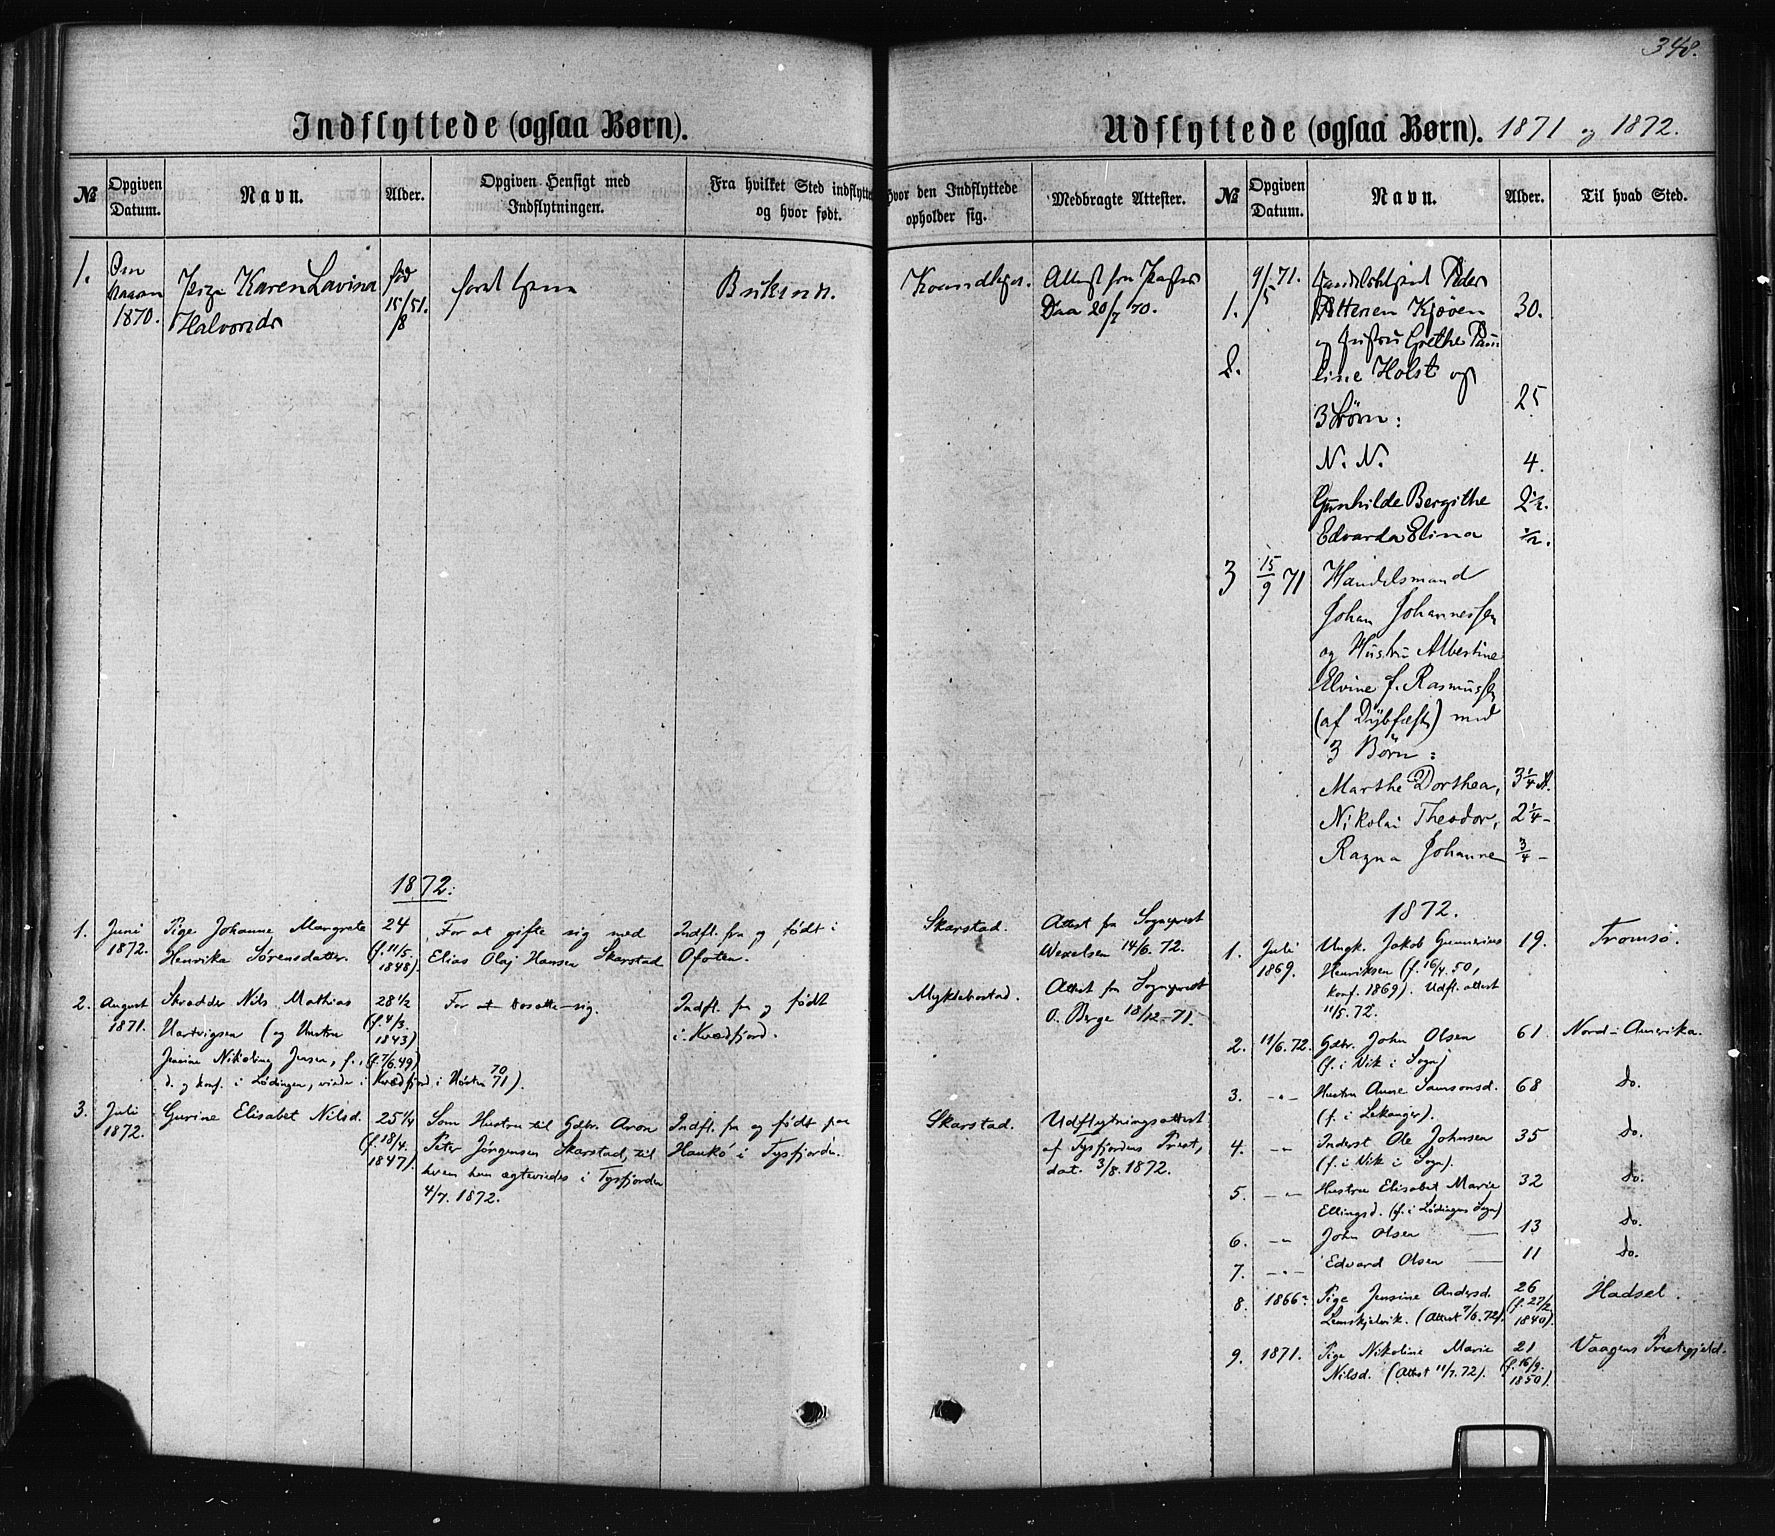 348.
Indflyttede (ogsaa Børn).
№
Opgiven Datum.
Navn.
Alder.
Opgiven Hensigt med Indflytningen.
Fra hvilket Sted indflytte
og hvor født.
1.
1870.
Pige Karen Lavina
Halvorsdr
fød
15/8 51.
1872.
1.
Juni
1872.
Pige Johanne Margrete
Henrika Sørensdatter.
24
(f. 11/5.
1848).
For at gifte sig med
Elias Olaj Hansen Skarstad
Indfl. fra og født i
Ofoten.
2.
August
1871.
Skrædder Nils Mathias
Hartvigsen (og Hustru
Jensine Nikoline Jensen, f.,
d. og konf. i Lødingen, viede i Kvædfjord i Høsten 70/71).
28 1/2
(f. 4/3.
1843)
(f. 7/6.49)
For at bosætte sig.
Indfl. fra og født
i Kvædfjord.
3.
Juli
1872.
Gurine Elisabet Nilsd.
25 1/4
(f. 18/4.
1847).
Som Hustru til Gdbr. Aron
Peter Jørgensen Skarstad, til
hvem hun ægteviedes i Tysfjorden
4/7. 1872.
Indfl. fra og født paa
Haukø i Tysfjorden.
Udflyttede (ogsaa Børn). 1871 og 1872.
Hvor den Indflyttede
opholder sig.
Medbragte Attester.
№
Opgiven Datum.
Navn.
Alder.
Til hvad Sted.
Attest fra
Daa 20/7 70.
Skarstad.
Attest fra Sogneprest
Wexelsen 14/6. 72.
Myklebostad.
Attest fra Sogneprest
O. Berge 18/12-71.
Skarstad.
Udflytningsattest
af Tysfjordens Prest,
dat. 3/8. 1872.
1.
9/5 71.
Peder
Kjøven
og Hustru Grethe Pau
line Holst og
3 Børn:
30.
2.
25
N. N.
4.
Gunhilde Bergithe
2 1/2.
Edvarda Elina
1/2.
3
15/9 71
Handelsmand
Johan Johannessen
og Hustru Albertine
Elvine f. Rasmussen
(af Dybfest) med
3 Børn:
Marthe Dorthea,
3 1/4 A.
Nikolai Theodor,
2 1/4 -
Ragna Johanne
3/4 -
1872.
1.
Juli
1869.
Ungk. Jakob Gunnerius
Henriksen (f. 16/4. 50,
konf. 1869). Udfl. attest
11/5. 72.
19.
Tromsø.
2.
11/6. 72.
Gdbr. John Olsen
(f. i Vik i Sogn)
61.
Nord-Amerika.
3.
-"-
Hustru Anne Samsonsd.
(f. i Lekanger).
68
Do.
4.
-"-
Inderst Ole Johnsen
(f. i Vik i Sogn).
35
Do.
5.
-"-
Hustru Elisabet Marie
Ellingsd. (f. i Lødingens Sogn)
32
Do.
6.
-"-
John Olsen
13
Do.
7.
-"-
Edvard Olsen
11
Do.
8.
1866?
Pige Jensine Andersd.
(Attest 7/6. 72).
26
(f. 27/2
1840).
Hadsel.
9.
1871.
Pige Nikoline Marie
Nilsd. (Attest 11/7. 72).
21
(f. 16/9.
1850).
Vaagens Prestegjeld.